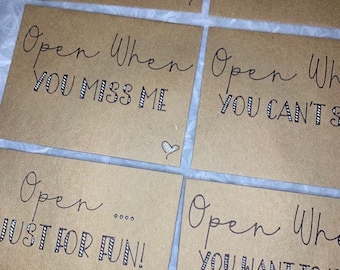 Open When
YOU MISS ME
Open Whe
YOU CAN'T S
Open ....
JUST FOR FUN!
Open Whe
YOU WANT TO